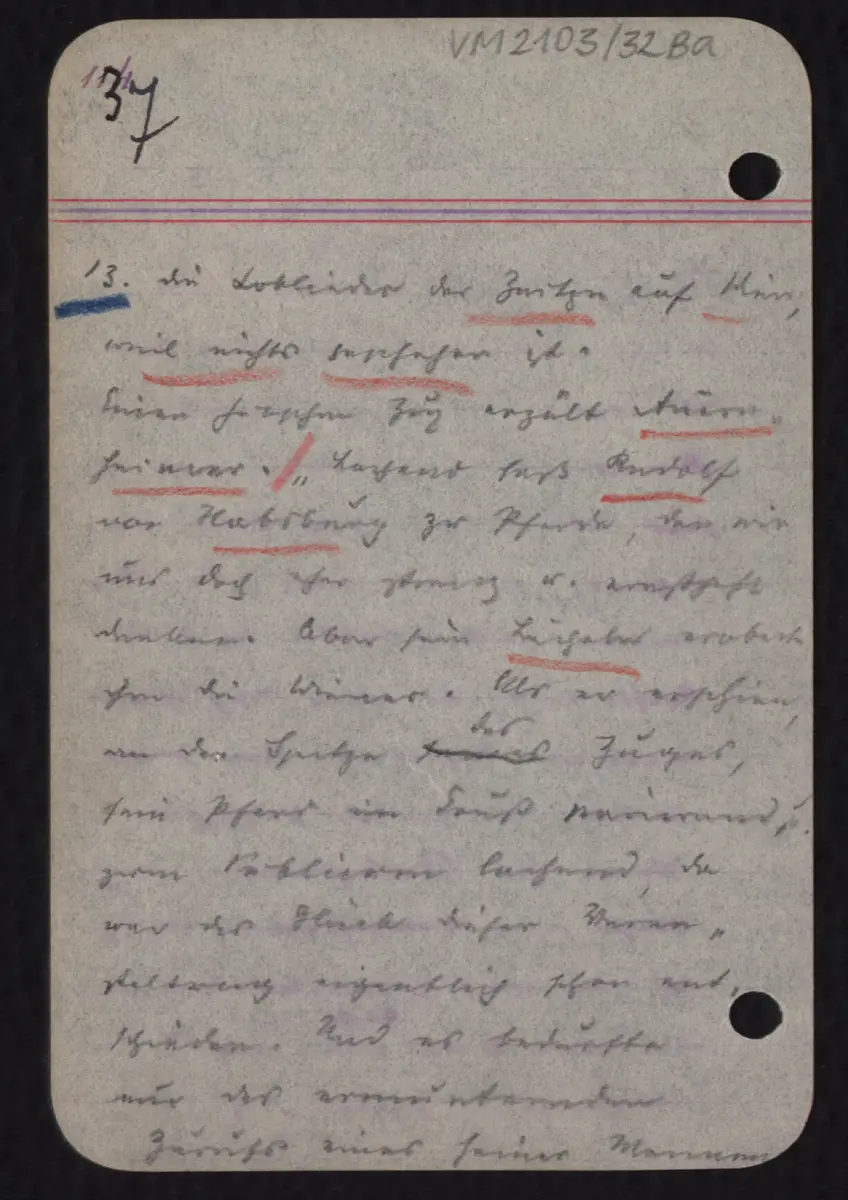 VM2103/32Ba
37
13. die Loblieder der Zeitgn auf Wien,
weil nichts geschehen ist.
Einen hübschen Zug erzält Auern„
heimer. „ Lachend saß Rudolf
von Habsburg zu Pferde, den wir
uns doch eher streng u. ernsthaft
denken. Aber sein Lächeln eroberte
ihm die Wiener. Als er erschien,
an der Spitze des Zuges,
sein Pferd im Fuß parierend, u.
zum Publicum lachend, da
war das Glück dieser Veran„
staltung eigentlich schon ent„
schieden. Und es bedurfte
nur des ermunternden
Zurufs eines seiner Mannen